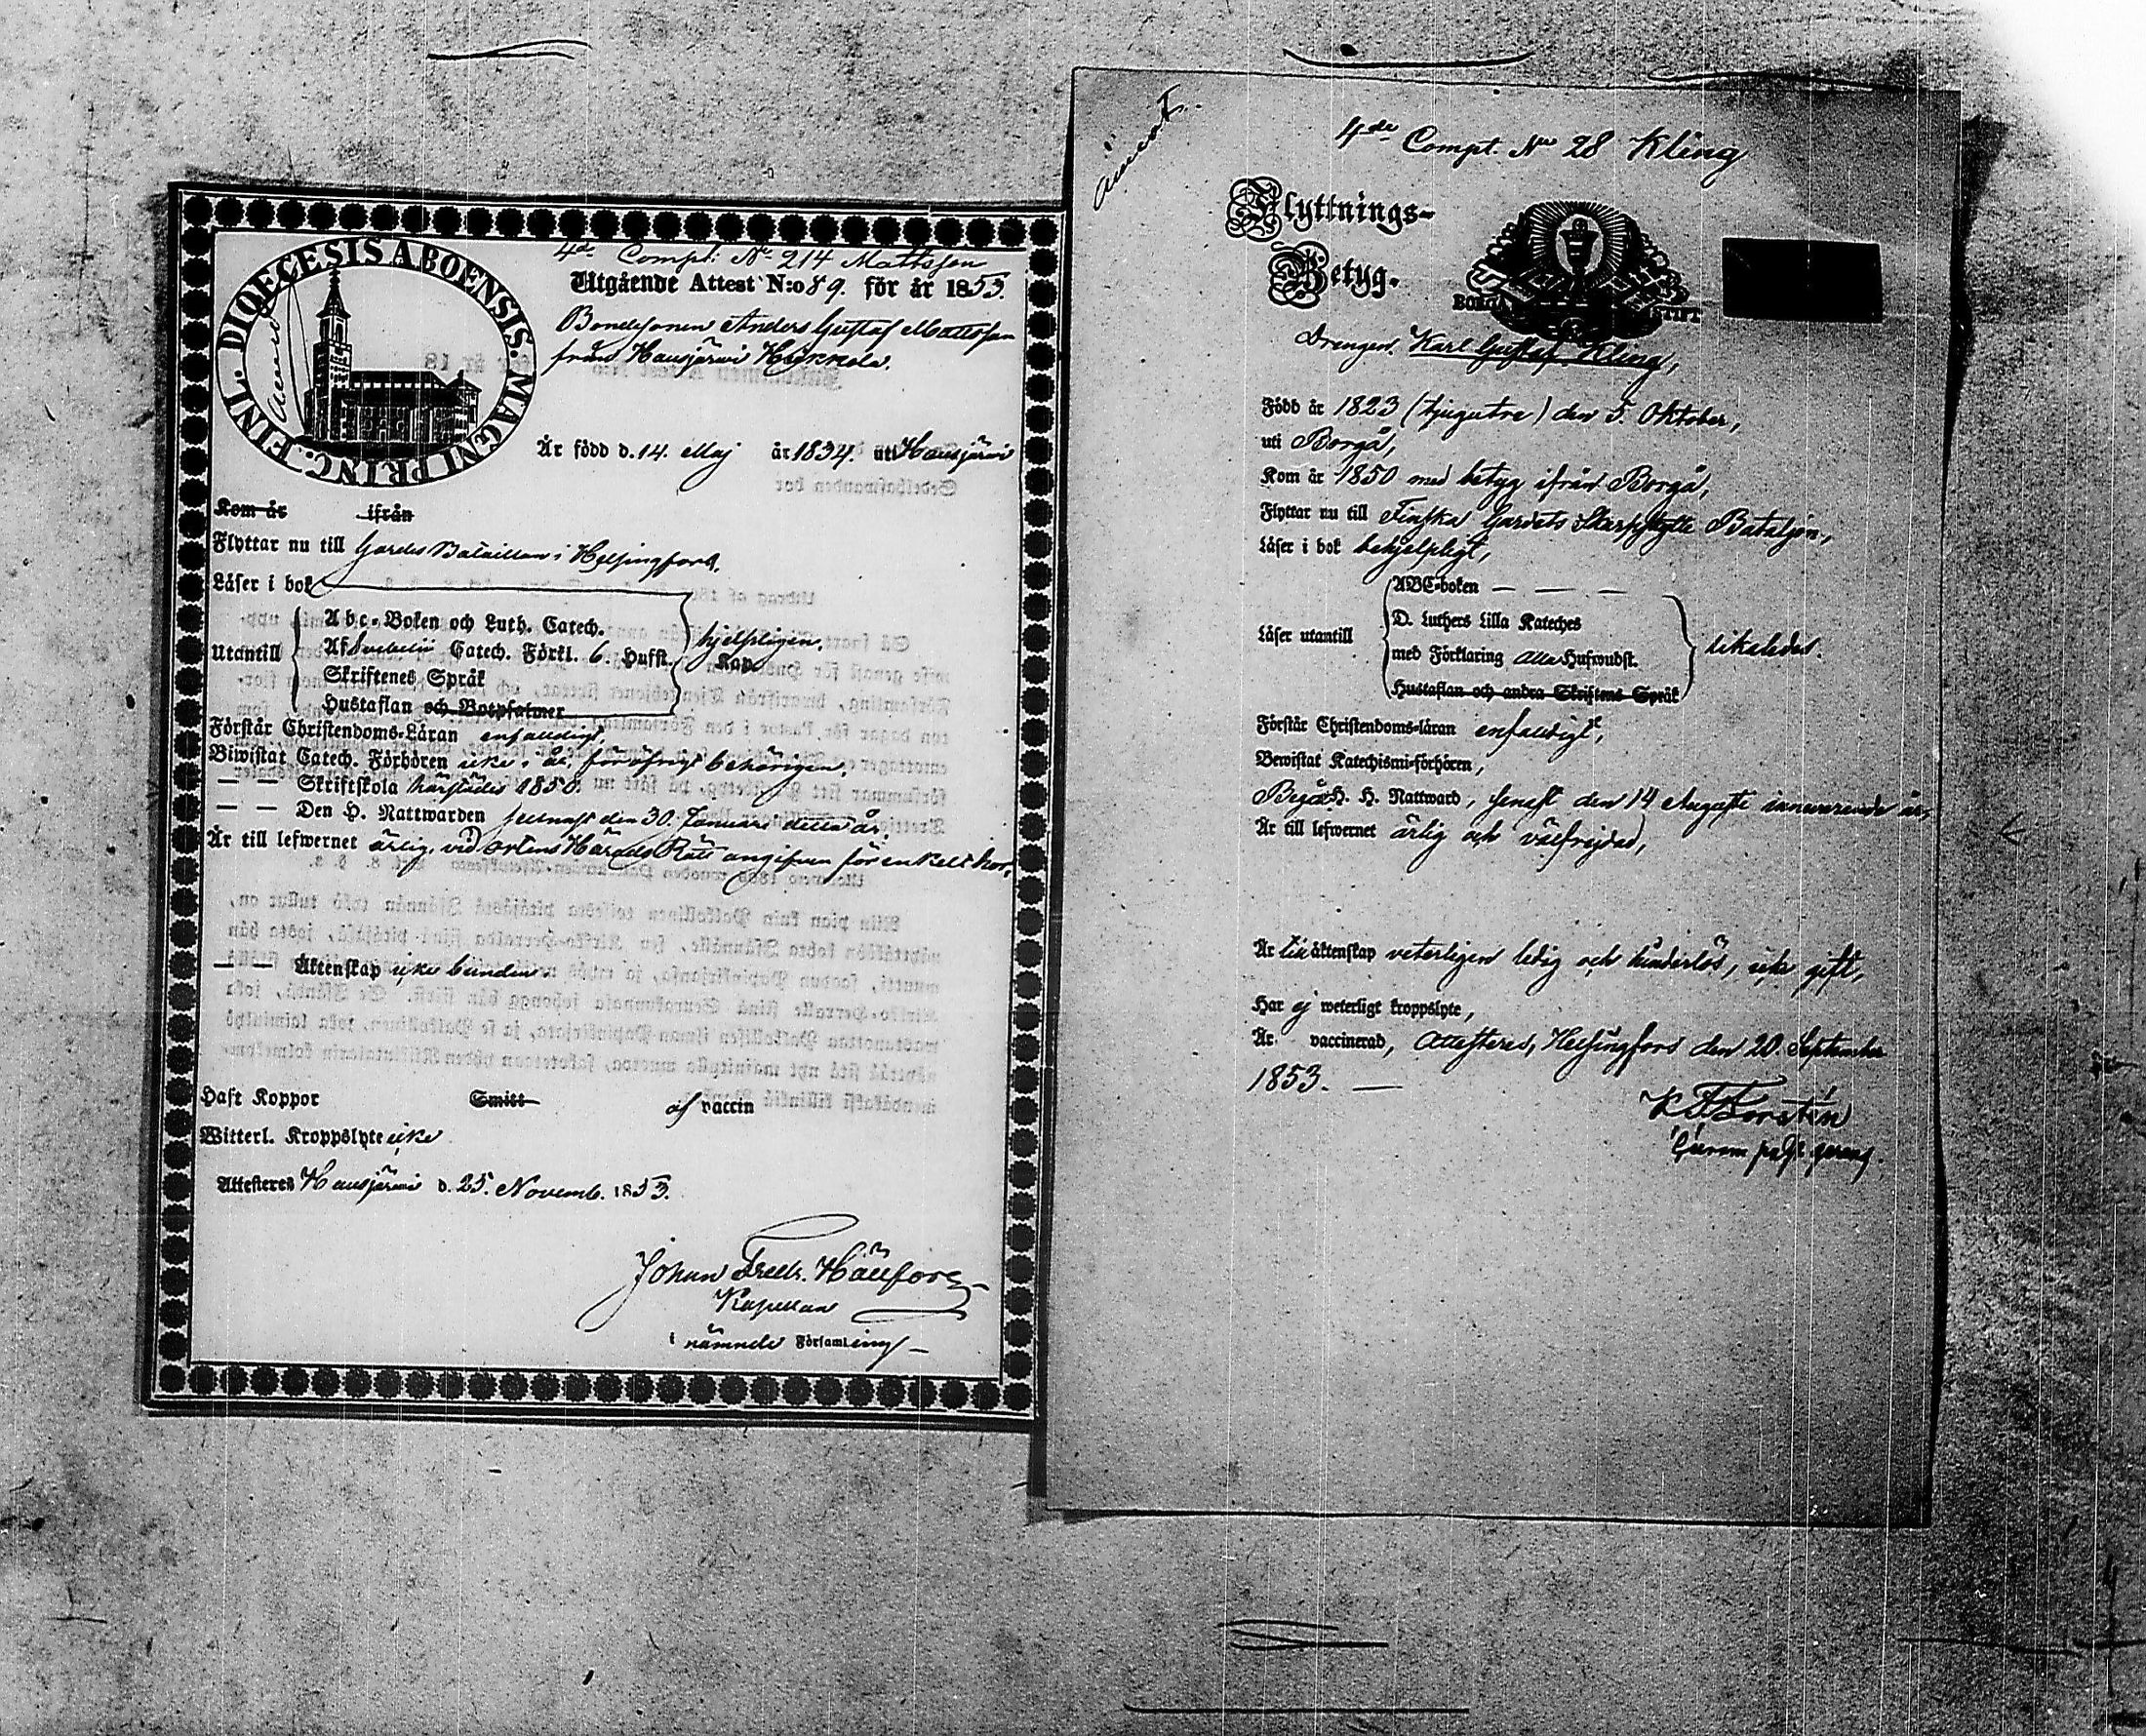 4de Compt: No 214 Mattsson
DIOECESIS ABOENSIS. MAGNI PRINC. FINL.
Utgående Attest N:o 89. för år 1853.
Bondesonen Anders Gustaf Mattsson
från Hausjärwi Hikkola.
Är född d. 14. Maj år 1834. uti Hausjärwi
Kom år ifrån
Flyttar nu till Gardes Bataillon i Helsingfors.
Läser i bok
Utantill
Abc-Boken och Luth. Catech.
Af Svebelii Catech. Förkl. 6. Hufst. Kap
Skriftenes Språk
Hustaflan och Botpsalmer
hjelpligen.
Förstår Christendoms-Läran enfaldigt,
Biwistat Catech. Förhören icke i år, föröfrigt behörigen.
— — Skriftskola härstädes 1850.
— — Den H. Nattwarden sednast den 30. Januari detta år.
Är till lefwernet ärlig, vid ortens Härads Rätt angifven för enkelt hor.
— — Äktenskap icke bunden.
Haft Koppor Smitt af vaccin
Witterl. Kroppslyte icke
Attesteres Hausjärwi d. 25. Novemb. 1853.
Johan Fredr.
Kapellan
i nämnde Församling
4de Compt. No 28 Kling
Flyttnings-
Betyg.
BORGÅ STIFT
Drengen Karl Gustaf Kling,
Född år 1823 (tjugutre) den 5. Oktober,
uti Borgå,
Kom år 1850 med betyg ifrån Borgå,
Flyttar nu till Finska Gardets Skarpskytte Bataljon,
Läser i bok behjelpligt,
Läser utantill
ABC-boken — — —
D. Luthers Lilla Kateches
med Förklaring alla Hufwudst.
Hustaflan och andra Skriftens Språk
likaledes.
Förstår Christendoms-läran enfaldigt,
Bewistat Katechismi-förhören,
Begått H. H. Nattward, senast den 14 Augusti innevarande år,
Är till lefwernet ärlig och välfrejdad,
Är till äktenskap veterligen ledig och hinderlös, icke gift,
Har ej weterligt kroppslyte,
Är vaccinerad, attesteres, Helsingfors den 20. September
1853. —
K F Forstén